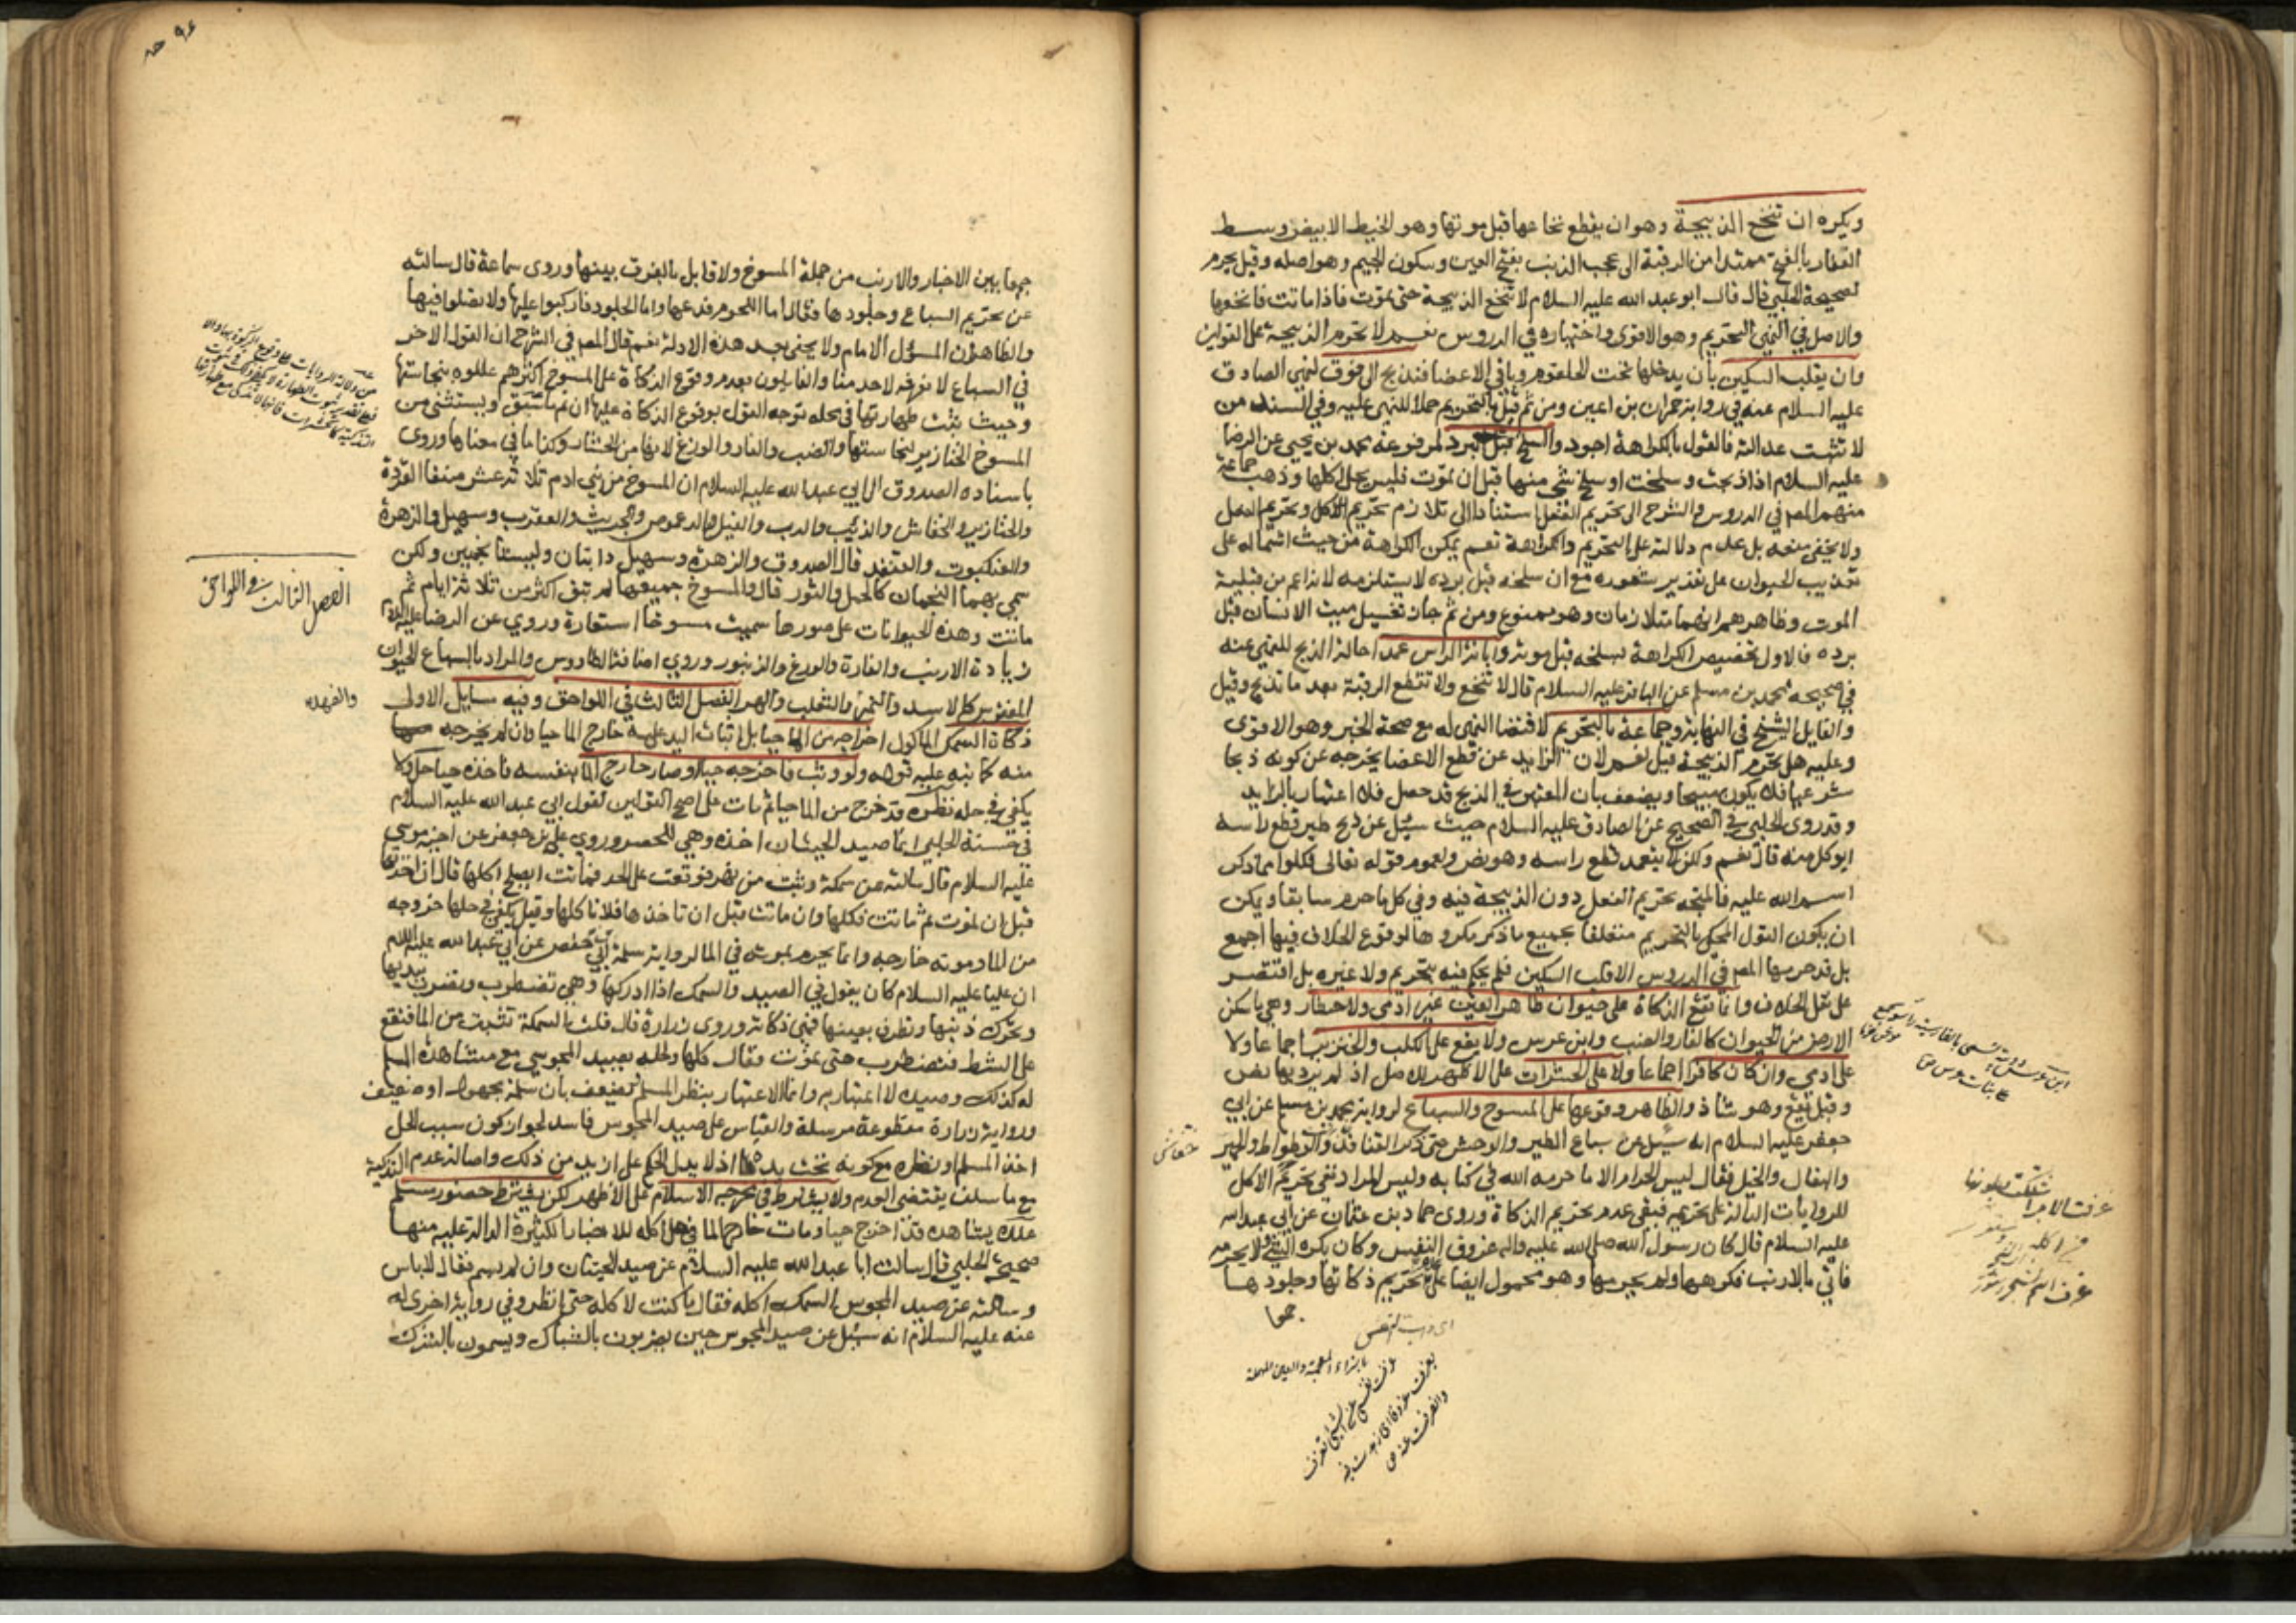 ويكره ان تنخع الذبيحة وهو ان يقطع نخاعها قبل موتها وهو الخيط الابيض وسط
الفقار بالفتح ممتدا من الرقبة الى عجب الذنب بفتح العين وسكون الجيم وهو اصله وقيل يحرم
لصحيحة الحلبي قال قال ابو عبد الله عليه السلام لا تنخع الذبيحة حتى تموت فاذا ماتت فانخعوها
والاصل في النهي التحريم وهو الاقوى واختياره في الدروس نعم لا تحرم الذبيحة على القولين
وان يقلب السكين بأن يدخلها تحت الحلقوم وباقي الاعضا فتذبح الى فوق لنهي الصادق
عليه السلام عنه في رواية حمران بن اعين ومن ثم قيل بالتحريم حملا للنهي عليه وفي السند من
لا تثبت عدالته فالقول بالكراهة اجود والسلخ قبل البرد لمرفوعة محمد بن يحيى عن الرضا
عليه السلام اذا ذبحت وسلخت او سلخ شي منها قبل ان تموت فليس يحل اكلها وذهب جماعة
منهم المص في الدروس والشرح الى تحريم الفعل استنادا الى تلازم تحريم الاكل وتحريم الفعل
ولا يخفى منعه بل عدم دلالته على التحريم والكراهة نعم يمكن الكراهة من حيث اشتماله على
تعذيب الحيوان على تقدير شعوره مع ان سلخه قبل برده لا يستلزمه لانه اعم من قبلية
الموت وظاهرهم انهما متلازمان وهو ممنوع ومن ثم جاز تغسيل ميت الانسان قبل
برده فالاولى تخصيص الكراهة بسلخه قبل موته وابانة الراس عمدا حالة الذبح للنهي عنه
في صحيحة محمد بن مسلم عن الباقر عليه السلام قال لا تنخع ولا تقطع الرقبة بعد ما تذبح وقيل
والقايل الشيخ في النهاية وجماعة بالتحريم لاقتضا النهي له مع صحة الخبر وهو الاقوى
وعليه هل تحرم الذبيحة قيل نعم لان الزايد عن قطع الاعضا يخرجه عن كونه ذبحا
شرعيا فلا يكون مبيحا ويضعف بان المعتبر في الذبح قد حصل فلا اعتبار بالزايد
وقد روى الحلبي في الصحيح عن الصادق عليه السلام حيث سئل عن ذبح طير قطع راسه
ايوكل منه قال نعم ولكن لا يتعمد قطع راسه وهو نص ولعموم قوله تعالى فكلوا مما ذكر
اسم الله عليه فالمتجه تحريم الفعل دون الذبيحة فيه وفي كل ما حرم سابقا ويمكن
ان يكون القول المحكي بالتحريم متعلقا بجميع ما ذكر مكروها لوقوع الخلاف فيها اجمع
بل قد حرمها المص في الدروس الا قلب السكين فلم يحكم فيه بتحريم ولا غيره بل اقتصر
على نقل الخلاف وانما تقع الذكاة على حيوان طاهر العين غير ادمي ولا حشار وهي ما سكن
الارض من الحيوان كالفار والضب وابن عرس ولا يقع على الكلب والخنزير اجماعا ولا
على ادمي وان كان كافرا اجماعا ولا على الحشرات على الاظهر للاصل اذ لم يرد بها نص
وقيل تقع وهو شاذ والظاهر وقوعها على المسوخ والسباع لرواية محمد بن مسلم عن ابي
جعفر عليه السلام انه سئل عن سباع الطير والوحش حتى ذكر القنافذ والوطواط والحمير
والبغال والخيل فقال ليس الحرام الا ما حرمه الله في كتابه وليس المراد نفي تحريم الاكل
للروايات الدالة على تحريمه فبقي عدم تحريم الذكاة وروى حماد بن عثمان عن ابي عبد الله
عليه السلام قال كان رسول الله صلى الله عليه واله عزوف النفس وكان يكره الشي ولا يحرمه
فاتي بالارنب فكرهها ولم يحرمها وهو محمول ايضا على عدم تحريم ذكاتها وجلودها
جمعا
خفاش
بالزاء المعجمة والعين المهملة
جمعا بين الاخبار والارنب من جملة المسوخ ولا قايل بالفرق بينها وروى سماعة قال سالته
عن تحريم السباع وجلودها فقال اما اللحوم فدعها واما الجلود فاركبوا عليها ولا تصلوا فيها
والظاهر ان المسؤل الامام ولا يخفى بعد هذه الادلة نعم قال المص في الشرح ان القول الاخر
في السباع لا نعرفه لاحد منا والقايلون بعدم وقوع الذكاة على المسوخ اكثرهم عللوه بنجاستها
وحيث ثبت طهارتها في محله توجه القول بوقوع الذكاة عليها ان تم ما سبق ويستثنى من
المسوخ الخنازير لنجاستها والضب والفار والوزغ لانها من الحشار وكذا ما في معناها وروى
باسناده الصدوق الى ابي عبد الله عليه السلام ان المسوخ من بني ادم ثلاثة عشر صنفا القردة
والخنازير والخفاش والذئب والدب والفيل والدعموص والجريث والعقرب وسهيل والزهرة
والعنكبوت والقنفذ قال الصدوق والزهرة وسهيل دابتان وليستا نجمين ولكن
سمي بهما النجمان كالحمل والثور قال والمسوخ جميعها لم تبق اكثر من ثلاثة ايام ثم
ماتت وهذه الحيوانات على صورها سميت مسوخا استعارة وروي عن الرضا عليه السلام
زيادة الارنب والفارة والوزغ والزنبور وروي اضافة الطاووس والمراد بالسباع الحيوان
المفترس كالاسد والنمر والثعلب والهر الفصل الثالث في اللواحق وفيه مسايل الاولى
ذكاة السمك الماكول اخراجه من الماء حيا بل اثبات اليد عليه خارج الما حيا وان لم يخرجه
منه كما نبه عليه قوله ولو وثب فاخرجه حيا او صار خارج الما بنفسه فاخذه حيا حل ولا
يكفي في حله نظره قد خرج من الما حيا ثم مات على اصح القولين لقول ابي عبد الله عليه السلام
في حسنة الحلبي انما صيد الحيتان اخذه وهي للحصر وروى علي بن جعفر عن اخيه موسى
عليه السلام قال سالته عن سمكة وثبت من نهر فوقعت على الجد فماتت ايصلح اكلها قال ان اخذتها
قبل ان تموت ثم ماتت فكلها وان ماتت قبل ان تاخذها فلا تاكلها وقيل يكفي في حلها خروجه
من الما وموته خارجه وانما يحرم بموته في الما لرواية سلمة ابي حفص عن ابي عبد الله عليه السلام
ان عليا عليه السلام كان يقول في الصيد والسمك اذا ادركها وهي تضطرب وتضرب بيديها
وتحرك ذنبها وتطرف بعينها فهي ذكاته وروى زرارة قال قلت السمكة تثب من الما فتقع
على الشط فتضطرب حتى تموت فقال كلها ولحله بصيد المجوسي مع مشاهدة المسلم
له كذلك وصيده لا اعتبار به وانما الاعتبار بنظر المسلم ويضعف بان سلمة مجهول او ضعيف
ورواية زرارة مقطوعة مرسلة والقياس على صيد المجوس فاسد لجواز كون سبب الحل
اخذ المسلم او نظره مع كونه تحت يد اذ لا يدل الحكم على ازيد من ذلك واصالة عدم التذكية
مع ما سلف يقتضي العدم ولا يشترط في مخرجه الاسلام على الاظهر لكن يشترط حضور مسلم
عنده يشاهده قد اخرج حيا ومات خارج الما في حل اكله للاخبار الكثيرة الدالة عليه منها
صحيحة الحلبي قال سالت ابا عبد الله عليه السلام عن صيد الحيتان وان لم يسم فقال لا باس
وسالته عن صيد المجوس السمك اكله فقال ما كنت لاكله حتى انظر وفي رواية اخرى له
عنه عليه السلام انه سئل عن صيد المجوس حين يضربون بالشباك ويسمون بالشرك
الفصل الثالث في اللواحق
والفهد